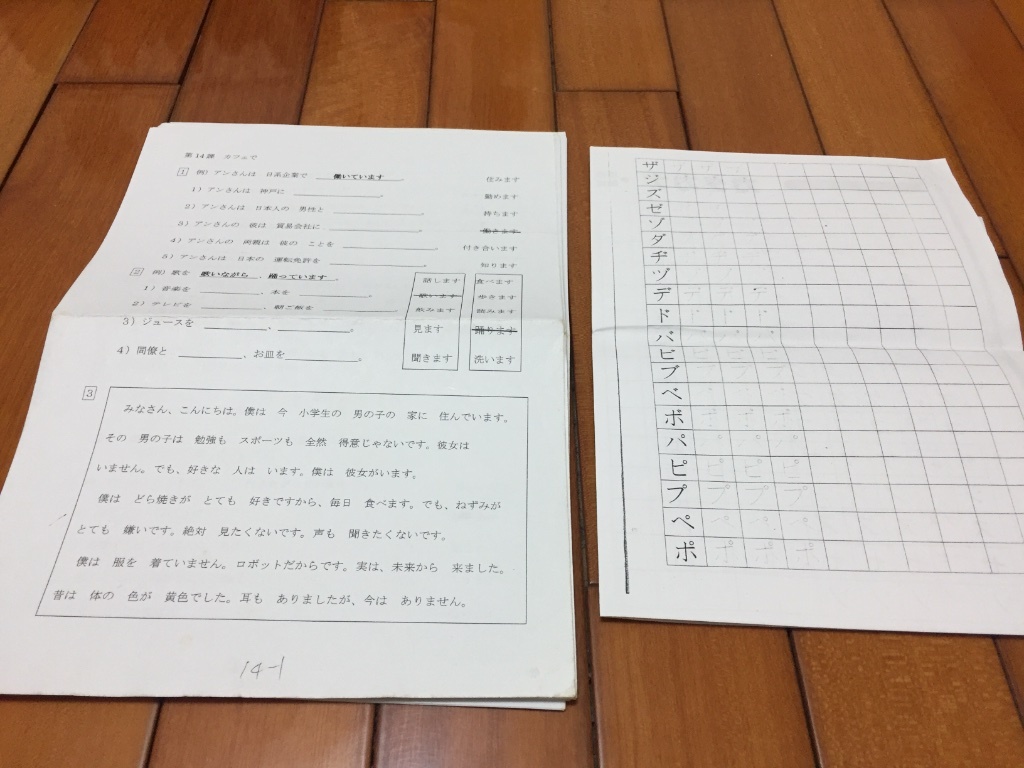 第14課 カフェで
1 例）アンさんは 日系企業で 働いています 。 住みます
1）アンさんは 神戸に ＿＿＿＿＿＿。 勤めます
2）アンさんは 日本人の 男性と ＿＿＿＿＿＿。 持ちます
3）アンさんの 彼は 貿易会社に ＿＿＿＿＿＿。 働きます
4）アンさんの 両親は 彼の ことを ＿＿＿＿＿＿。 付き合います
5）アンさんは 日本の 運転免許を ＿＿＿＿＿＿。 知ります
2 例）歌を 歌いながら 、踊っています 。
1）音楽を ＿＿＿＿＿＿、本を ＿＿＿＿＿＿。
2）テレビを ＿＿＿＿＿＿、朝ご飯を ＿＿＿＿＿＿。
3）ジュースを ＿＿＿＿＿＿、＿＿＿＿＿＿。
4）同僚と ＿＿＿＿＿＿、お皿を＿＿＿＿＿＿。
話します
歌います
飲みます
見ます
聞きます
食べます
歩きます
読みます
踊ります
洗います
3
みなさん、こんにちは。僕は 今 小学生の 男の子の 家に 住んでいます。
その 男の子は 勉強も スポーツも 全然 得意じゃないです。彼女は
いません。でも、好きな 人は います。僕は 彼女がいます。
僕は どら焼きが とても 好きですから、毎日 食べます。でも、ねずみが
とても 嫌いです。絶対 見たくないです。声も 聞きたくないです。
僕は 服を 着ていません。ロボットだからです。実は、未来から 来ました。
昔は 体の 色が 黄色でした。耳も ありましたが、今は ありません。
14-1
ザ
ジ
ズ
ゼ
ゾ
ダ
ヂ
ヅ
デ デ デ デ
ド ド ド ド
バ バ バ バ
ビ ビ ビ ビ
ブ ブ ブ ブ
ベ ベ ベ ベ
ボ ボ ボ ボ
パ パ パ パ
ピ ピ ピ ピ
プ プ プ プ
ペ ペ ペ ペ
ポ ポ ポ ポ